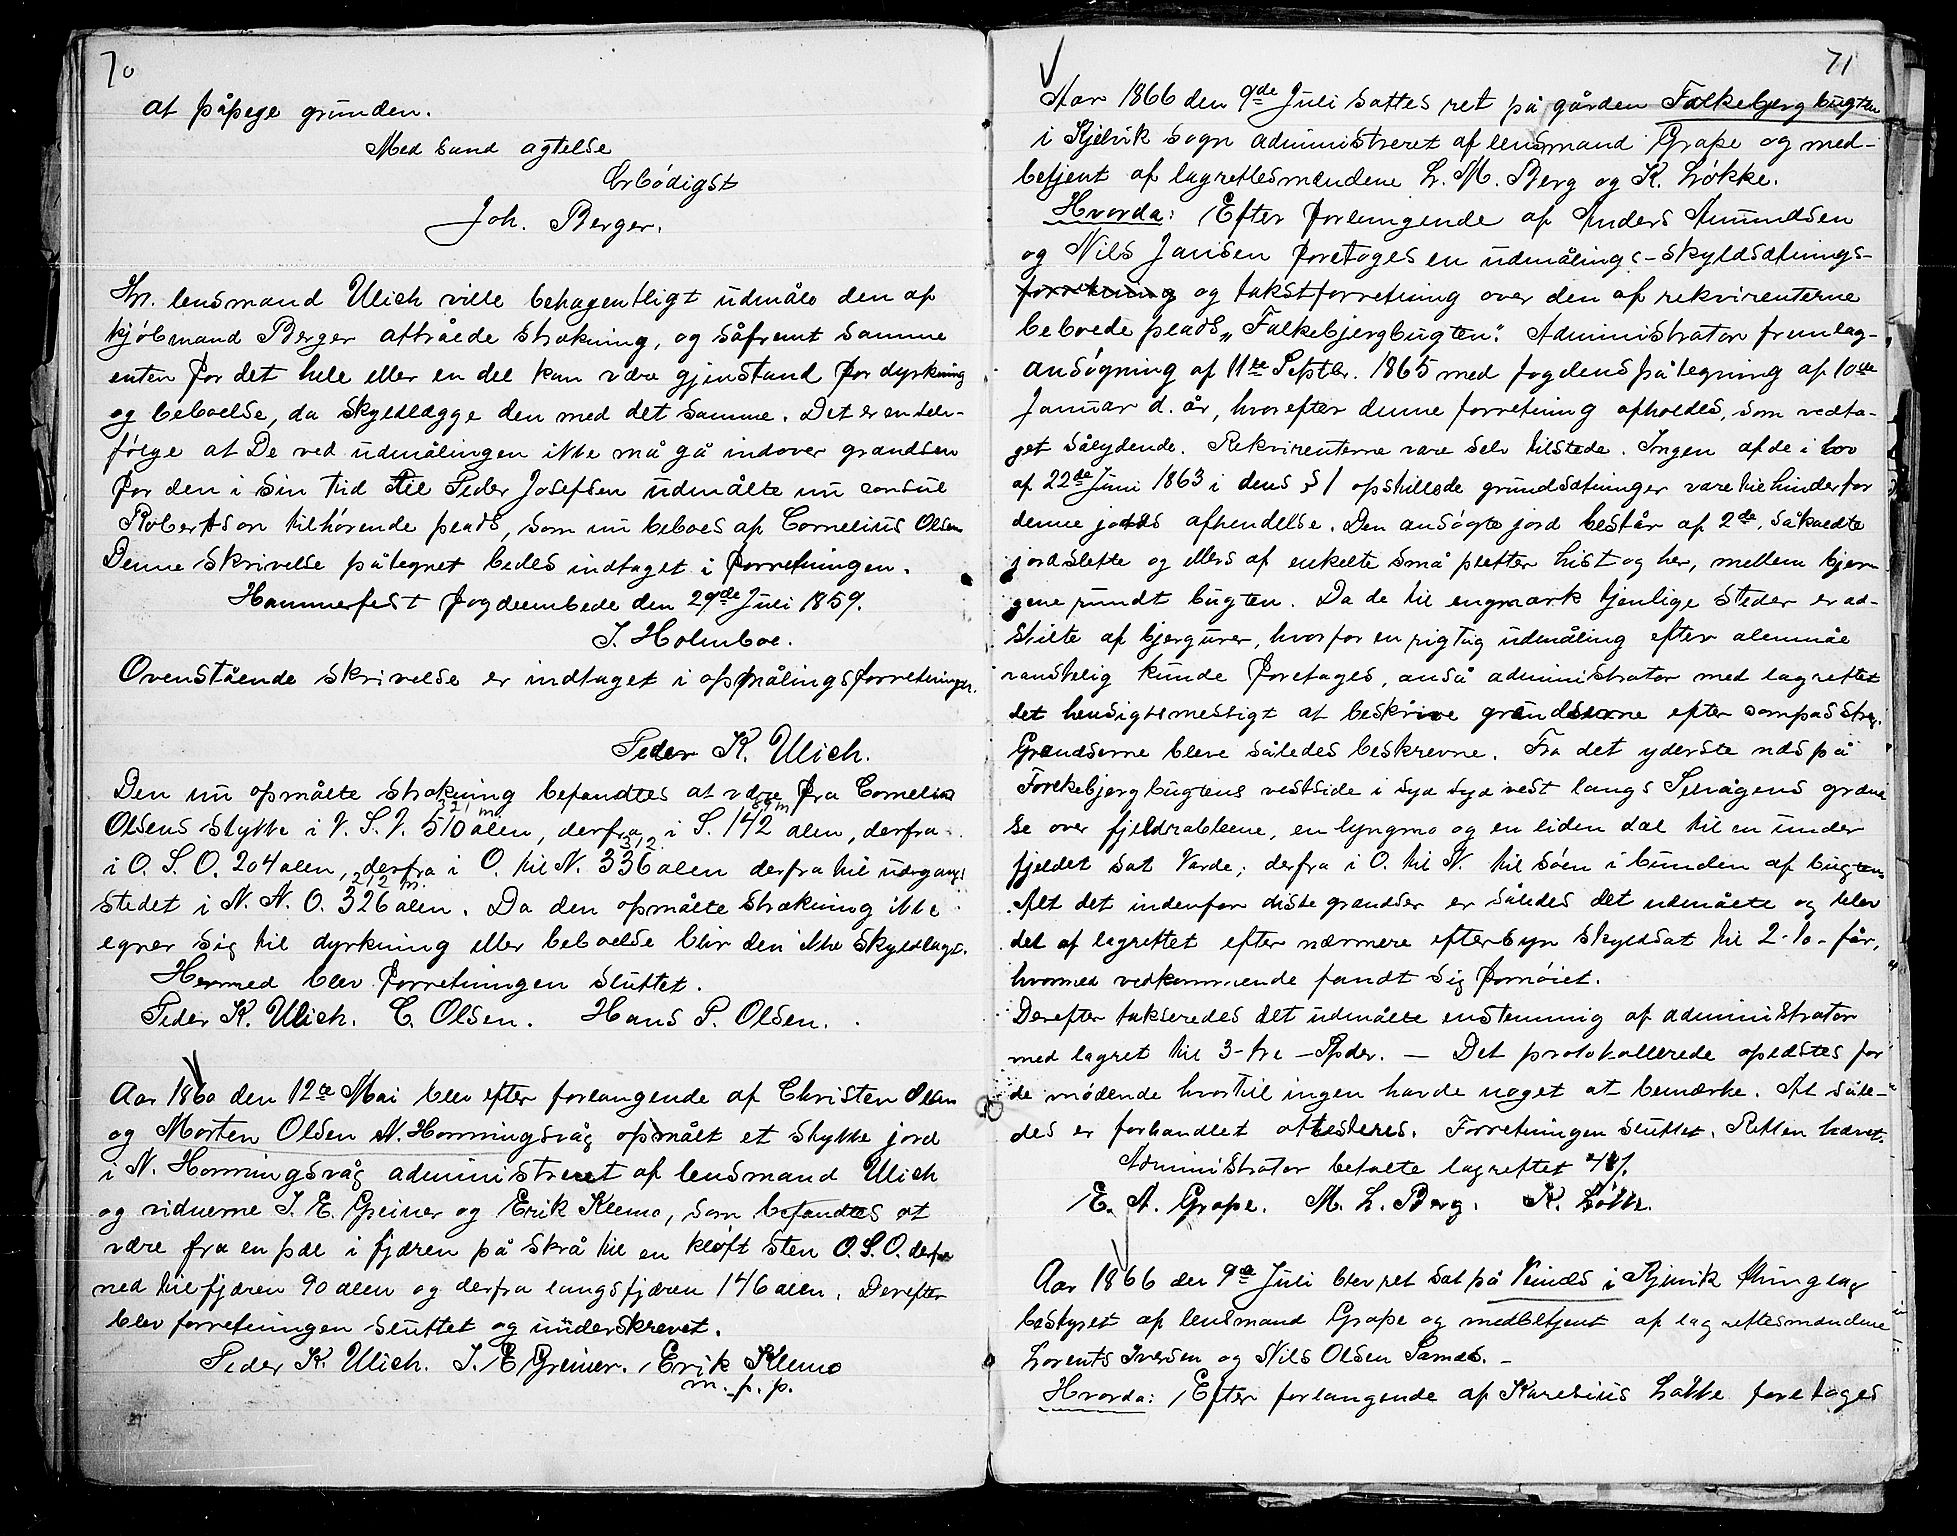 70
at påpege grunden.
Med sand agtelse
Erbödigst
Joh. Berger.
Hr. lensmand Ulich ville behagentligt udmåle den af
kjöbmand Berger attråede strækning, og såfremt samme
enten for det hele eller en del kan være gjenstand for dyrkning
og beboelse, da skyldlægge den med det samme. Det er en selv-
følge at De ved udmålingen ikke må gå indover grændsen
for den i sin tid til Peder Josefsen udmålte nu consul
Robertson tilhørende plads, som nu beboes af Cornelius Olsen
Denne skrivelse påtegnet bedes indtaget i forretningen.
Hammerfest fogdeembede den 29de Juli 1859.
J. Holmboe.
Ovenstående skrivelse er indtaget i opmålingsforretningen.
Peder K. Ulich.
Den nu opmålte strækning befandtes at være fra Cornelius
Olsens stykke i V. S. V. 510 alen, derfra i S. 142 alen, derfra
i O. S. O. 204 alen, derfra i O. til N. 336 alen derfra til udgangs
stedet i N. N. O. 326 alen. Da den opmålte strækning ikke
egner sig til dyrkning eller beboelse blir den ikke skyldlagt.
Hermed blev forretningen sluttet.
Peder K. Ulich. C. Olsen. Hans P. Olsen.
Aar 1860 den 12te Mai blev efter forlangende af Christen Olsen
og Morten Olsen N. Honningsvåg opmålt et stykke jord
i N. Honningsvåg administreret af lensmand Ulich
og vidnerne J. E. Greiner og Erik Klemo, som befandtes at
være fra en pæl i fjæren på skrå til en kløft sten O. S. O. derfra
ned til fjæren 90 alen og derfra langs fjæren 146 alen. Derefter
blev forretningen sluttet og underskrevet.
Peder K. Ulich. J. E Greiner. Erik Klemo
m. f. p.
71
Aar 1866 den 9de Juli sattes ret på gården Falkebjergbugten
i Kjelvik sogn administreret af lensmand Grape og med-
betjent af lagrettesmændene L. M. Berg og K. Løkke.
Hvorda: Efter forlangende af Anders Amundsen
og Nils Jansen foretoges en udmålings-skyldsætnings-
forretning og takstforretning over den af rekvirenterne
beboede plads "Falkebjergbugten". Administrator fremlag-
ansögning af 11te Septbr. 1865 med fogdens påtegning af 10de
Januar d. år, hvorefter denne forretning afholdes, som vedta-
get sålydende. Rekvirenterne vare selv tilstede. Ingen af de i lov
af 22de Juni 1863 i dens § 1 opstillede grundsætninger vare til hinder for
denne jords afhendelse. Den ansøgte jord består af 2de, såkaldte
jordslette og ellers af enkelte små pletter hist og her, mellem bjer
gene rundt bugten. Da de til engmark tjenlige steder er ad-
skilte af bjergurer, hvorfor en rigtig udmåling efter alenmål
vanskelig kunde foretages, anså administrator med lagrettet
det hensigtsmessigt at beskrive grændserne efter compasstreg.
Grændserne bleve således beskrevne. Fra det yderste nds på
Forkebjergbugtens vestside i syd syd vest langs Selvågens grænd
se over fjeldrabbene, en lyngmo og en liden dal til en under
fjeldet sat Varde; derfra i O. til N. til søen i bunden af bugten.
Alt det indenfor disse grændser er således det udmålte og blev
det af lagrettet efter nærmere eftersyn skyldsat til 2-to-får,
hvormed vedkommende fandt sig fornøiet.
Derefter takseredes det udmålte enstemmig af administrator
med lagret til 3-tre-Spdr. — Det protokollerede oplæstes for
de mødende hvortil ingen havde noget at bemærke. At såle-
des er forhandlet attesteres. Forretningen sluttet. Retten hævet.
Administrator betalte lagrettet
E. A. Grape. M. L. Berg. K. Løkke.
Aar 1866 den 9de Juli blev ret sat på i Kjelvik thinglag
bestyret af lensmand Grape og medbetjent af lagrettesmændene
Lorents Iversen og Nils Olsen
Hvorda: Efter forlangende af Karelius Løkke foretoges